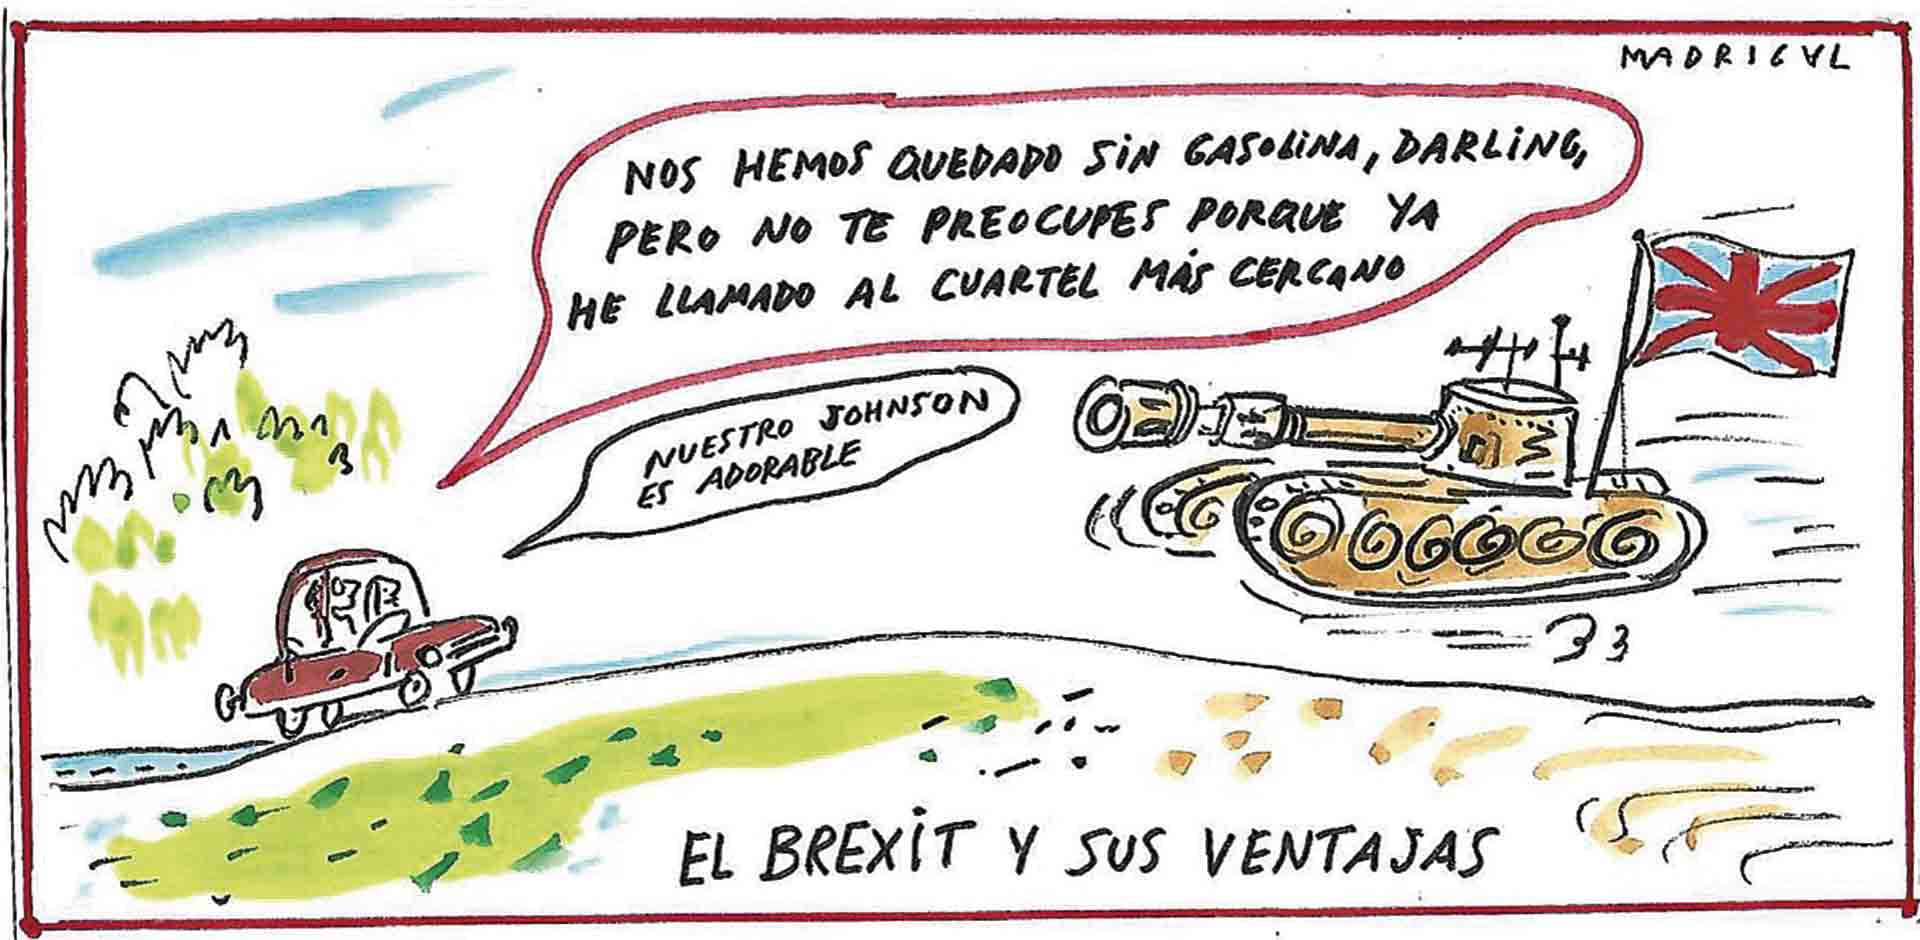 MADRIGAL
NOS HEMOS QUEDADO SIN GASOLINA, DARLING,
PERO NO TE PREOCUPES PORQUE YA
HE LLAMADO AL CUARTEL MÁS CERCANO
NUESTRO JOHNSON
ES ADORABLE
EL BREXIT Y SUS VENTAJAS